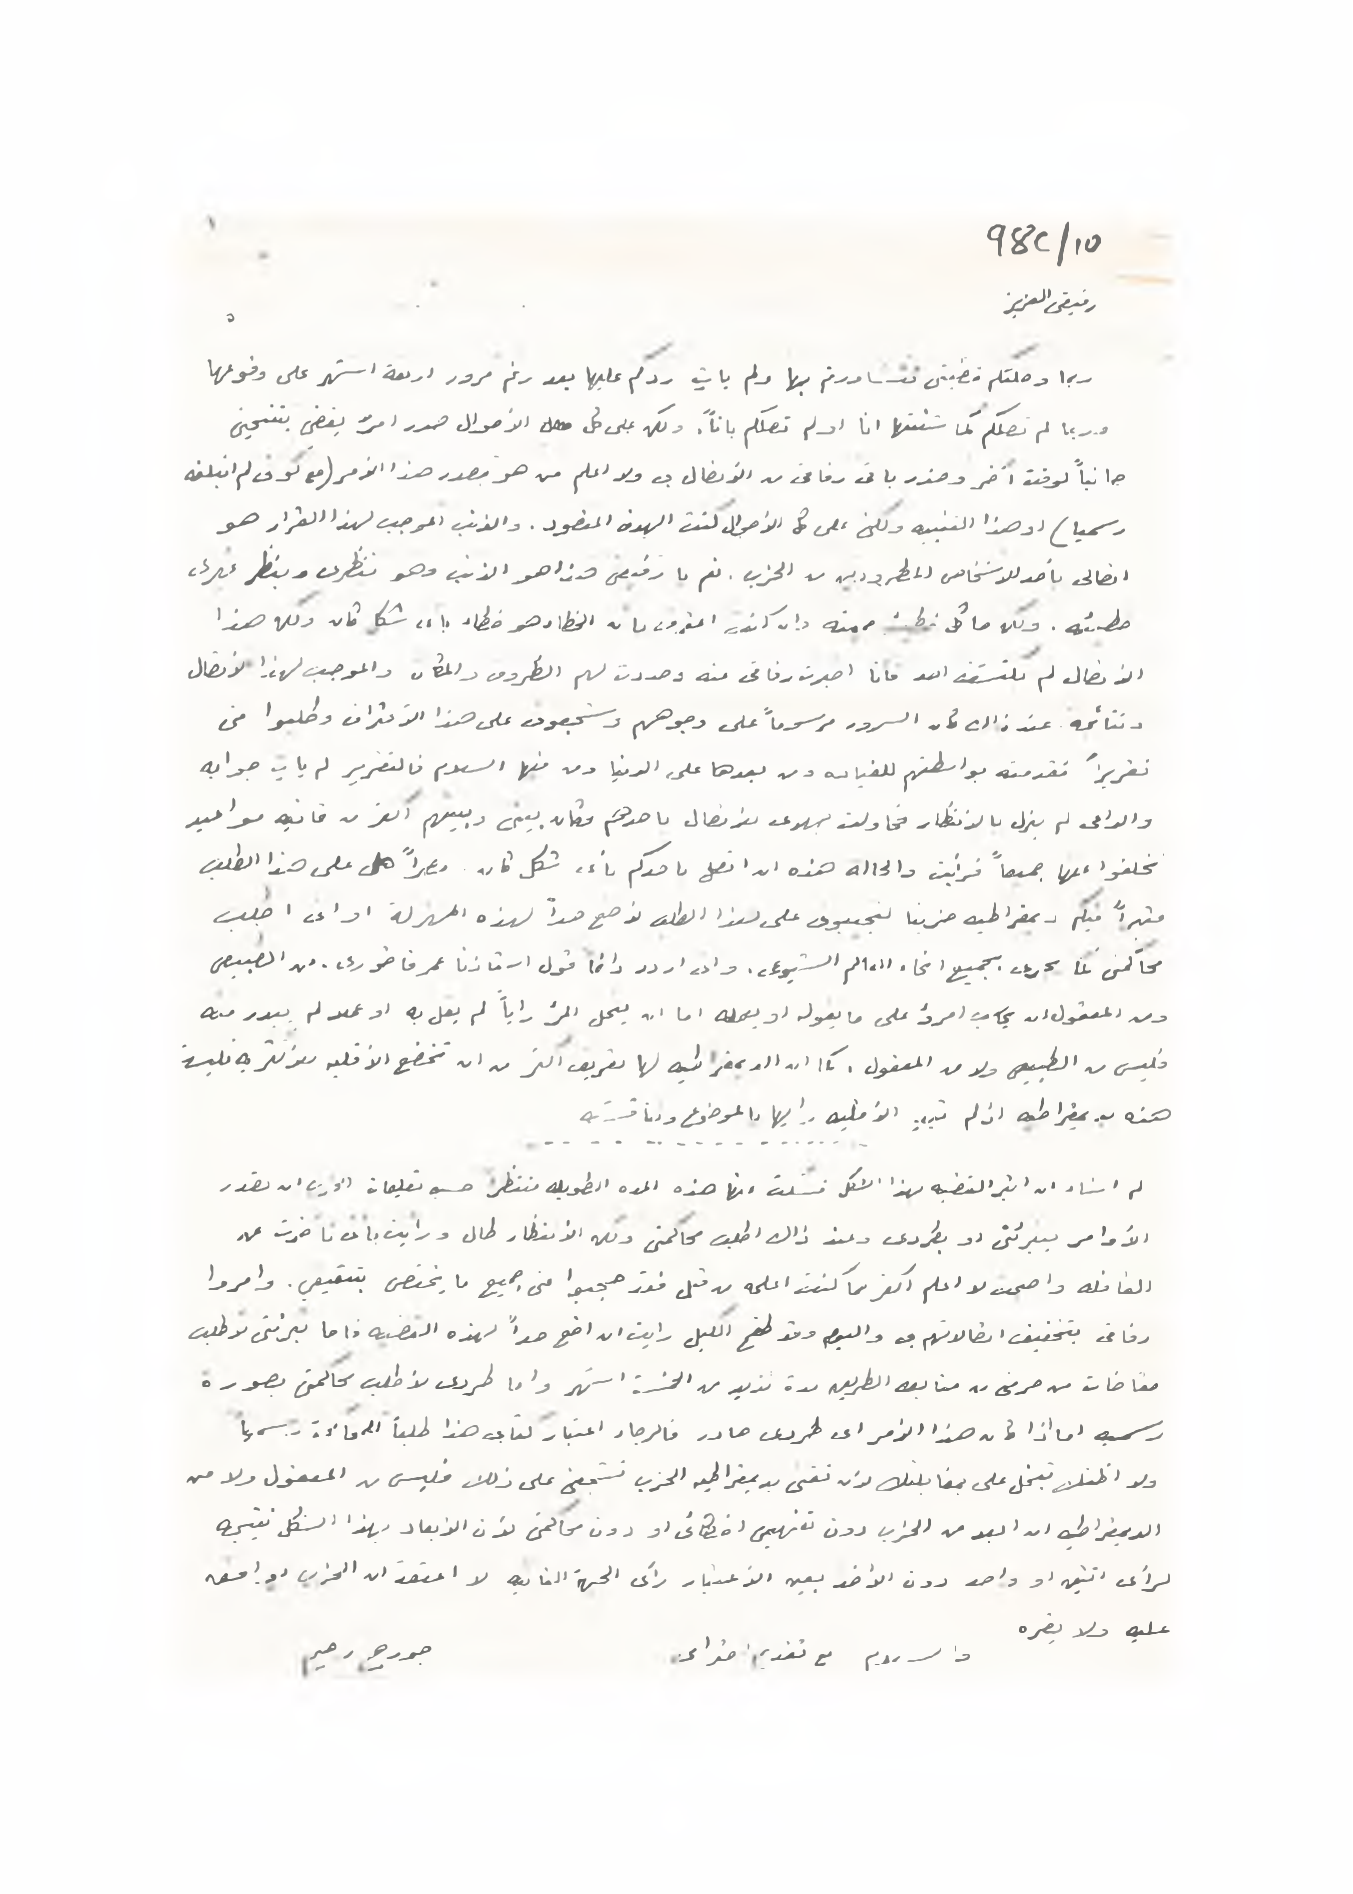 ١
٩٨٢/١٥
رفيقي العزيز
ربما وصلتكم قضيتي فتشاورتم بها ولم يأتِ ردكم عليها بعد رغم مرور اربعة اشهر على وقوعها
وربما لم تصلكم كما شئتها انا او لم تصلكم باتاً، ولكن على كل الأحوال صدر امرٌ يقضي بتنحيتي
جانباً لوقت آخر وحذر باقي رفاقي من الأتصال بي ولا اعلم من هو مصدر هذا الأمر (مع كوني لم ابلغه
رسميا) او هذا التنبيه ولكني على كل الأحوال كنت الهدف المقصود. والذنب الموجب لهذا القرار هو
اتصالي بأحد الاشخاص المطرودين من الحزب. نعم يا رفيقي هذا هو الذنب وهو بنظري وبنظر غيري
خطيئه. ولكن ما كل خطيئة مميته وان كنت اعترف بان الخطاء هو خطاء بأي شكل كان ولكن هذا
الأتصال لم يكتشفه احد فانا اخبرت رفاقي عنه وحددت لهم الظروف والمكان والموجب لهذا الأتصال
ونتائجه عند ذاك كان السرور مرسوماً على وجوههم وشجعوني على هذا الأعتراف وطلبوا مني
تقريراً فقدمته بواسطتهم للقياده ومن بعدها على الدنيا ومن فيها السلام فالتقرير لم يأتِ جوابه
والداعي لم يزل بالأنتظار فحاولت جهدي للأتصال باحدهم وكان بيني وبينهم أكثر من ثمانيه مواعيد
تخلفوا عنها جميعاً فرأيت والحاله هذه ان اتصل باحدكم بأي شكل كان. على هذا الطلب
منكم ديمقراطيه حزبنا لتجيبوني على هذا الطلب لأضع حداً لهذه المهزلة او اني اطلب
محاكمتي كما يجري بجميع انحاء العالم الشيوعي. واني اردد دائما قول استاذنا عمر فاخوري. من الطبيعي
ومن المعقول ان يحاسب امرؤ على ما يقوله او يعمله اما ان يحمل المرؤ راياً لم يقل به او عملا لم يبدر منه
فليس من الطبيعي ولا من المعقول، كما ان الديمقراطيه لها تعريف أكثر من ان تخضع الأقليه للأكثريه فليست
هذه بديمقراطيه اذ لم تبدِ الأقليه رايها بالموضوع ومناقشته
لم اشاء ان اثير القضيه بهذا الشكل فسكت انها هذه المده الطويله منتظراً حسب تعليمات الحزب ان تصدر
الأوامر بتبرئتي او بطردي وعند ذاك اطلب محاكمتي ولكن الأنتظار طال ورأيت باني تأخرت عن
القافله واصبحت لا اعلم أكثر مما كنت اعلمه من قبل فقد حجبوا عني جميع ما يختص بتثقيفي. وامروا
رفاقي بتخفيف اتصالاتهم بي واليوم وقد طفح الكيل رايت ان اضع حداً لهذه القضيه فاما تبرئتي لأطلب
مقاضات من حرمني من متابعة الطريق مدة تزيد عن الخمسة اشهر واما طردي لأطلب محاكمتي بصورة
رسميه اما اذا كان هذا الأمر اي طردي صادر فالرجاء اعتبار كتابي هذا طلباً للمحاكمة رسمياً
ولا اظنك تبخل علي بمقابلتك لأن ثقتي بديمقراطيه الحزب تشجعني على ذلك فليس من المعقول ولا من
الديمقراطيه ان ابعد عن الحزب دون تفهيمي اخطائي او دون محاكمتي لأن الأبعاد بهذا الشكل نتيجه
لرأي اثنين او واحد دون الأخذ بعين الأعتبار رأي الجهة الثانيه لا اعتقد ان الحزب يوافق
عليه ولا يقره
والسلام مع تقديم احترامي
جورج رحيم